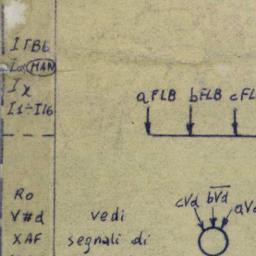 IΓBb
Io MAN
Ix
I1÷I16
aFLB bFLB cFL
Ro
V#d vedi
XAF segnali di
cVd bVd aVd